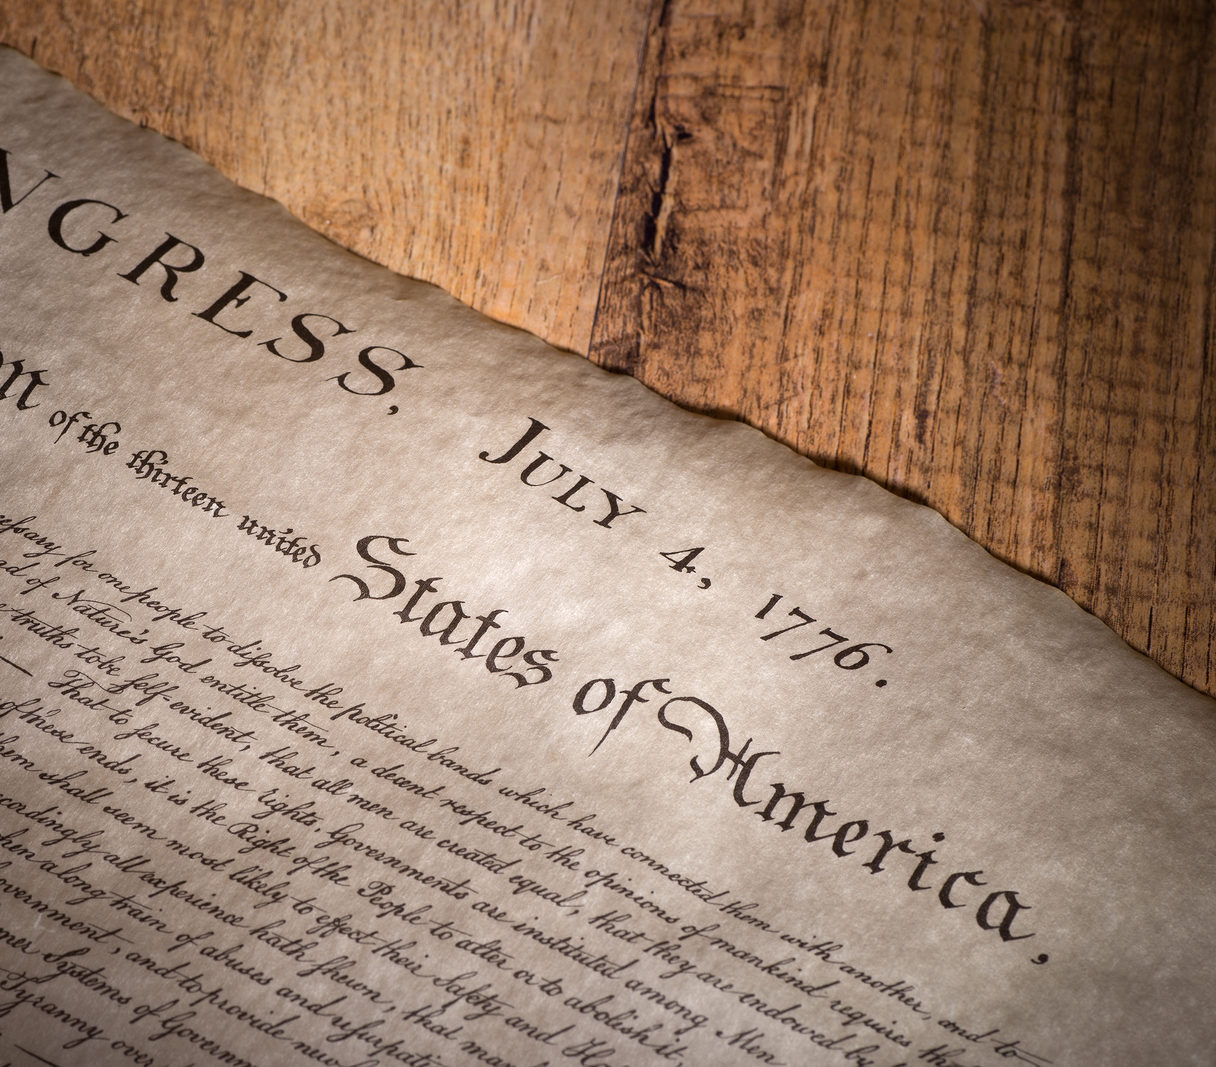 NGRESS, JULY 4, 1776.
on of the thirteen united States of America,
cessary for one people to dissolve the political bands which have connected them with another, and to
nd of Nature's God entitle them, a decent respect to the opinions of mankind requires th
e truths to be self-evident, that all men are created equal, that they are endowed by
— That to secure these rights, Governments are instituted among Men
of these ends, it is the Right of the People to alter or to abolish it,
hem shall seem most likely to effect their Safety and Ha
cordingly all experience hath shewn, that man
hen a long train of abuses and usurpati
vernment, and to provide new
mer Systems of Governm
Tyranny over